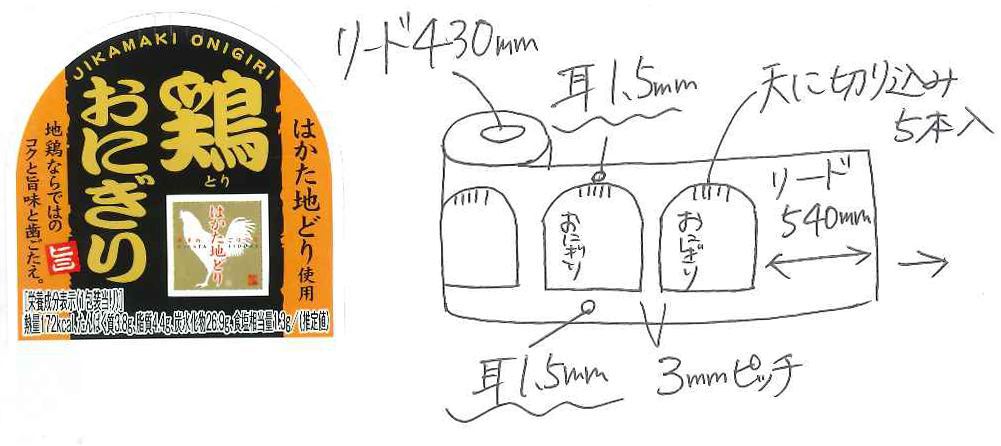 JIKAMAKI ONIGIRI
鶏
とり
おにぎり
はかた地どり使用
地鶏ならではの
コクと旨味と歯ごたえ。
旨
はかた地どり
[栄養成分表示(1包装当り)]
熱量172kcal、たんぱく質3.8g、脂質4.4g、炭水化物26.9g、食塩相当量1.3g/(推定値)
リード430mm
耳1.5mm
天に切り込み
5本入
リード
540mm
おにぎり
おにぎり
耳1.5mm
3mmピッチ